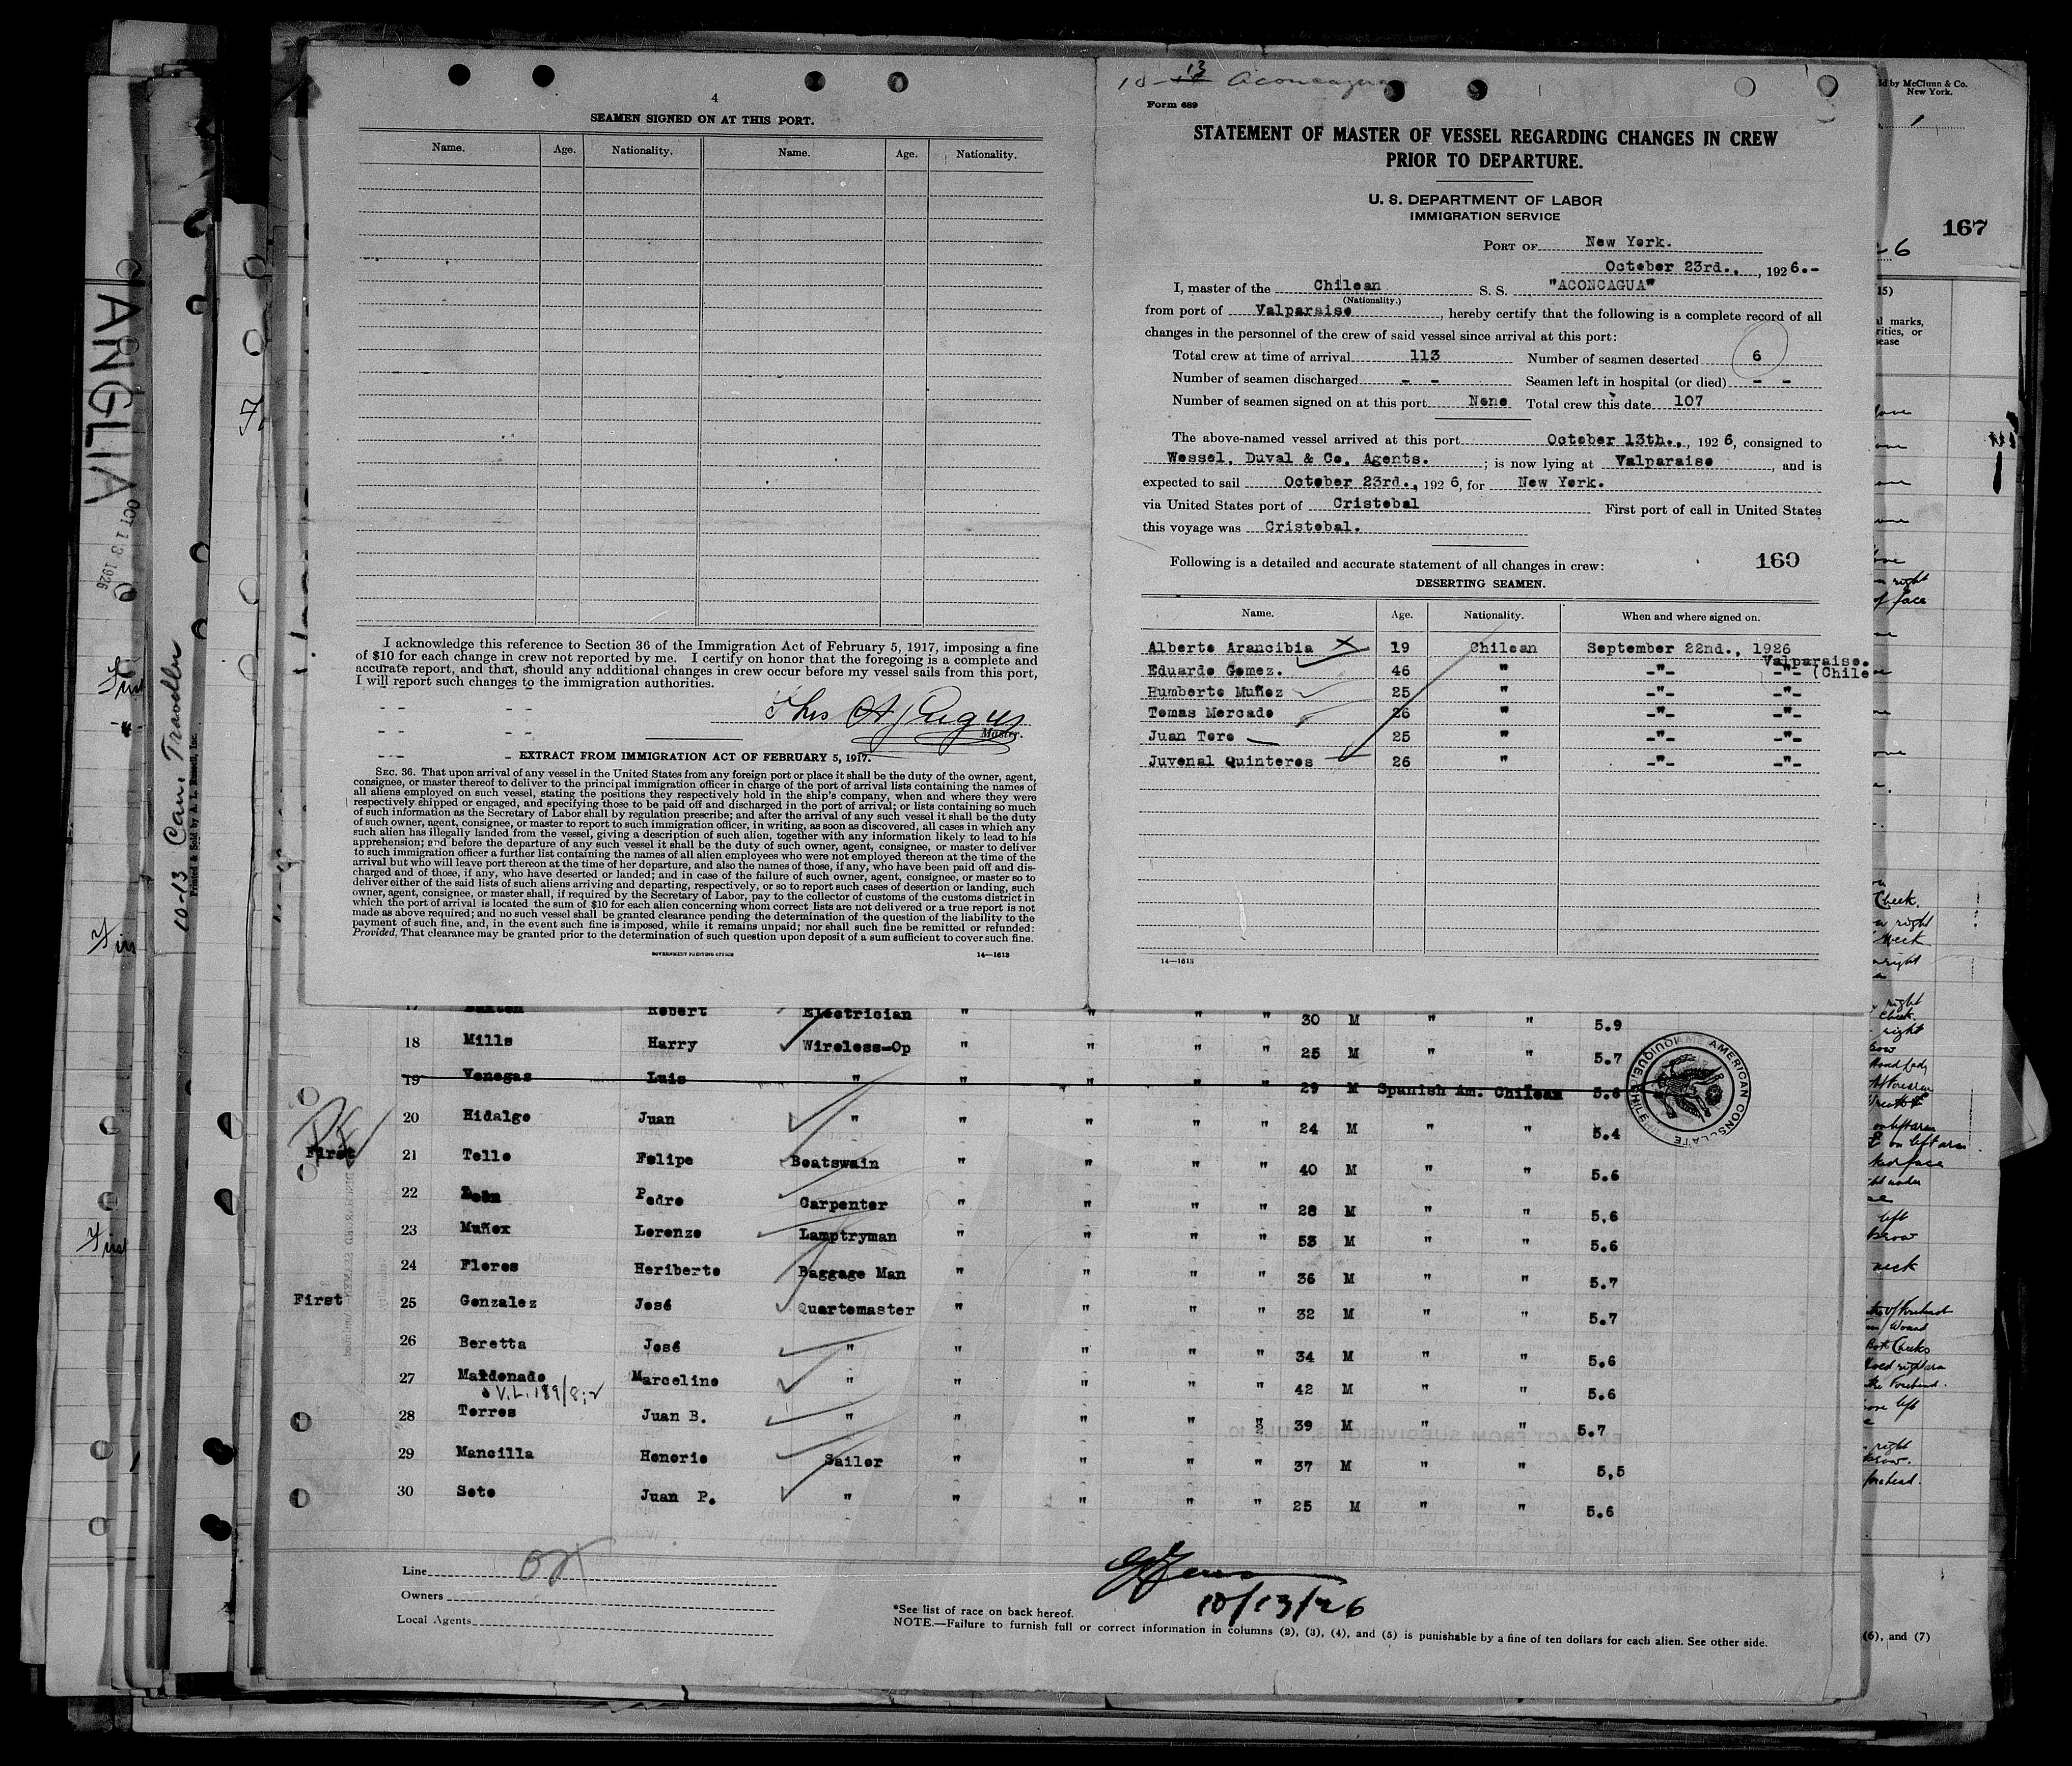 4
SEAMEN SIGNED ON AT THIS PORT.
Name. Age. Nationality. Name. Age. Nationality.
I acknowledge this reference to Section 36 of the Immigration Act of February 5, 1917, imposing a fine
of $10 for each change in crew not reported by me. I certify on honor that the foregoing is a complete and
accurate report, and that, should any additional changes in crew occur before my vessel sails from this port,
I will report such changes to the immigration authorities.
Master.
EXTRACT FROM IMMIGRATION ACT OF FEBRUARY 5, 1917.
SEC. 36. That upon arrival of any vessel in the United States from any foreign port or place it shall be the duty of the owner, agent,
consignee, or master thereof to deliver to the principal immigration officer in charge of the port of arrival lists containing the names of
all aliens employed on such vessel, stating the positions they respectively hold in the ship's company, when and where they were
respectively shipped or engaged, and specifying those to be paid off and discharged in the port of arrival; or lists containing so much
of such information as the Secretary of Labor shall by regulation prescribe; and after the arrival of any such vessel it shall be the duty
of such owner, agent, consignee, or master to report to such immigration officer, in writing, as soon as discovered, all cases in which any
such alien has illegally landed from the vessel, giving a description of such alien, together with any information likely to lead to his
apprehension; and before the departure of any such vessel it shall be the duty of such owner, agent, consignee, or master to deliver
to such immigration officer a further list containing the names of all alien employees who were not employed thereon at the time of the
arrival but who will leave port thereon at the time of her departure, and also the names of those, if any, who have been paid off and dis-
charged and of those, if any, who have deserted or landed; and in case of the failure of such owner, agent, consignee, or master so to
deliver either of the said lists of such aliens arriving and departing, respectively, or so to report such cases of desertion or landing, such
owner, agent, consignee, or master shall, if required by the Secretary of Labor, pay to the collector of customs of the customs district in
which the port of arrival is located the sum of $10 for each alien concerning whom correct lists are not delivered or a true report is not
made as above required; and no such vessel shall be granted clearance pending the determination of the question of the liability to the
payment of such fine, and, in the event such fine is imposed, while it remains unpaid; nor shall such fine be remitted or refunded:
Provided, That clearance may be granted prior to the determination of such question upon deposit of a sum sufficient to cover such fine.
GOVERNMENT PRINTING OFFICE 14—1613
10-13 Aconcagua
Form 689
STATEMENT OF MASTER OF VESSEL REGARDING CHANGES IN CREW
PRIOR TO DEPARTURE.
U. S. DEPARTMENT OF LABOR
IMMIGRATION SERVICE
PORT OF New York.
October 23rd., , 192 6.-
I, master of the Chilean S. S. "ACONCAGUA"
(Nationality.)
from port of Valparaiso , hereby certify that the following is a complete record of all
changes in the personnel of the crew of said vessel since arrival at this port:
Total crew at time of arrival 113 Number of seamen deserted 6
Number of seamen discharged - - Seamen left in hospital (or died) - -
Number of seamen signed on at this port None Total crew this date 107
The above-named vessel arrived at this port October 13th., , 192 6, consigned to
Wessel, Duval & Co, Agents. ; is now lying at Valparaiso , and is
expected to sail October 23rd., 192 6, for New York.
via United States port of Cristobal First port of call in United States
this voyage was Cristobal.
Following is a detailed and accurate statement of all changes in crew: 160
DESERTING SEAMEN.
Name. Age. Nationality. When and where signed on.
Alberto Arancibia 19 Chilean September 22nd., 1926
Valparaiso.
Eduardo Gomez. 46 " -"- -"- (Chile
Humberto Muñoz 25 " -"- -"-
Tomas Mercado 26 " -"- -"-
Juan Toro 25 " -"- -"-
Juvenal Quinteros 26 " -"- -"-
14—1613
17 Robert Electrician " " " " 30 M " " 5.9
18 Mills Harry Wireless-Op " " " " 25 M " " 5.7
19 Venegas Luis " " " " " 29 M Spanish Am. Chilean 5.6
20 Hidalgo Juan " " " " " 24 M " " 5.4
First 21 Tello Felipe Boatswain " " " " 40 M " " 5.6
22 Pedro Carpenter " " " " 28 M " " 5.6
23 Muñoz Lorenzo Lamptryman " " " " 53 M " " 5.6
24 Flores Heriberto Baggage Man " " " " 36 M " " 5.7
First 25 Gonzalez José Quartemaster " " " " 32 M " " 5.7
26 Beretta José " " " " " 34 M " " 5.6
27 Maldonado Marcelino " " " " " 42 M " " 5.6
V.L. 189/8;2
28 Torres Juan B. " " " " " 39 M " " 5.7
29 Mancilla Honorio Sailor " " " " 37 M " " 5,5
30 Soto Juan P. " " " " " 25 M " " 5.6
AMERICAN CONSULATE
Line
Owners
Local Agents
10/13/26
*See list of race on back hereof.
NOTE.—Failure to furnish full or correct information in columns (2), (3), (4), and (5) is punishable by a fine of ten dollars for each alien. See other side.
ANGLIA
OCT 13 1926
10-13 Cam. Traveller
167
by McClunn & Co.
New York.
(6), and (7)